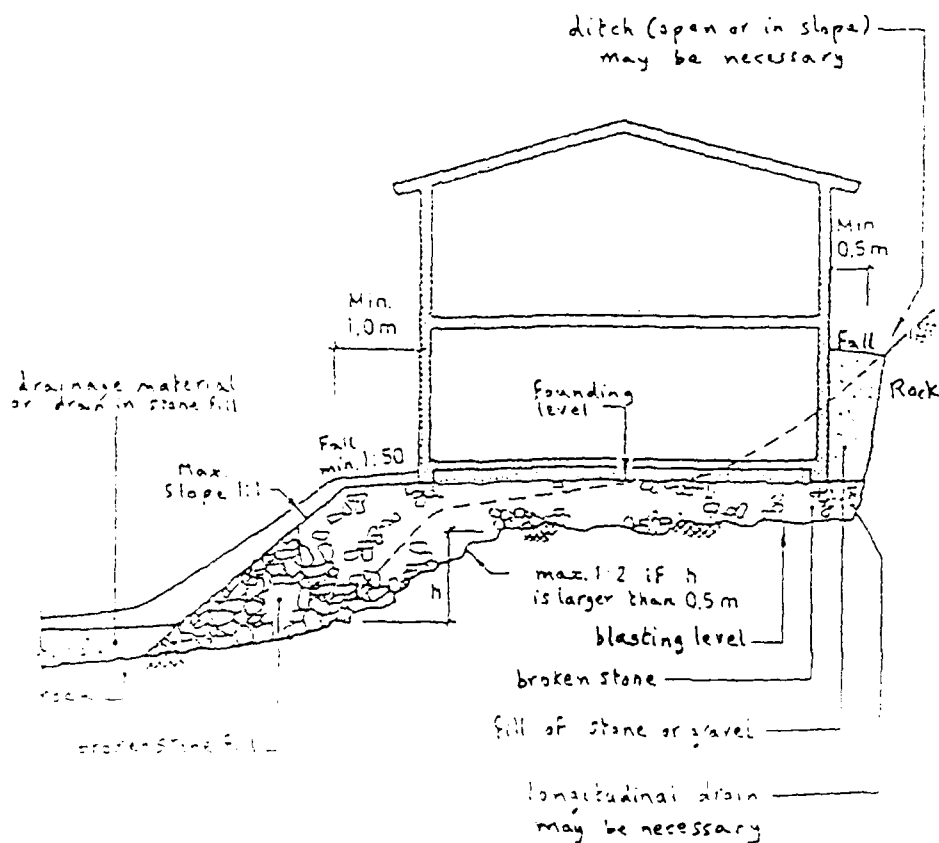 ditch (open or in slope)
may be necessary
Min
0,5 m
Min.
1,0 m
Fall
Rock
drainage material
or drain in stone fill
founding
level
Fall
min. 1:50
Max.
Slope 1:1
h
max. 1:2 if h
is larger than 0,5 m
blasting level
broken stone
fill of stone or gravel
longitudinal drain
may be necessary